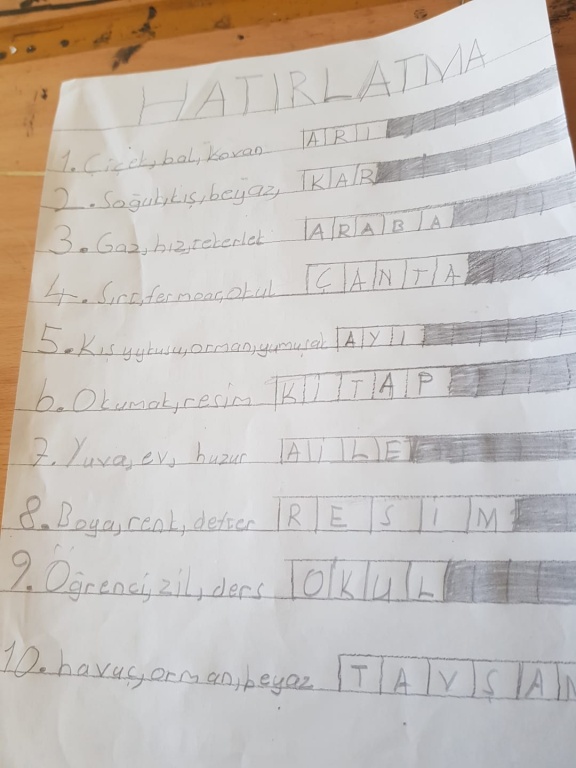 HATIRLATMA
1. Çiçek, bal, kovan ARI
2. Soğuk, kış, beyaz, KAR
3. Gaz, hız, tekerlek ARABA
4. Sırt, fermoar, okul ÇANTA
5. Kış uykusu, orman, yumuşak AYI
6. Okumak, resim KİTAP
7. Yuva, ev, huzur AİLE
8. Boya, renk, defter RESİM
9. Öğrenci, zil, ders OKUL
10. havuç, orman, beyaz TAVŞAN